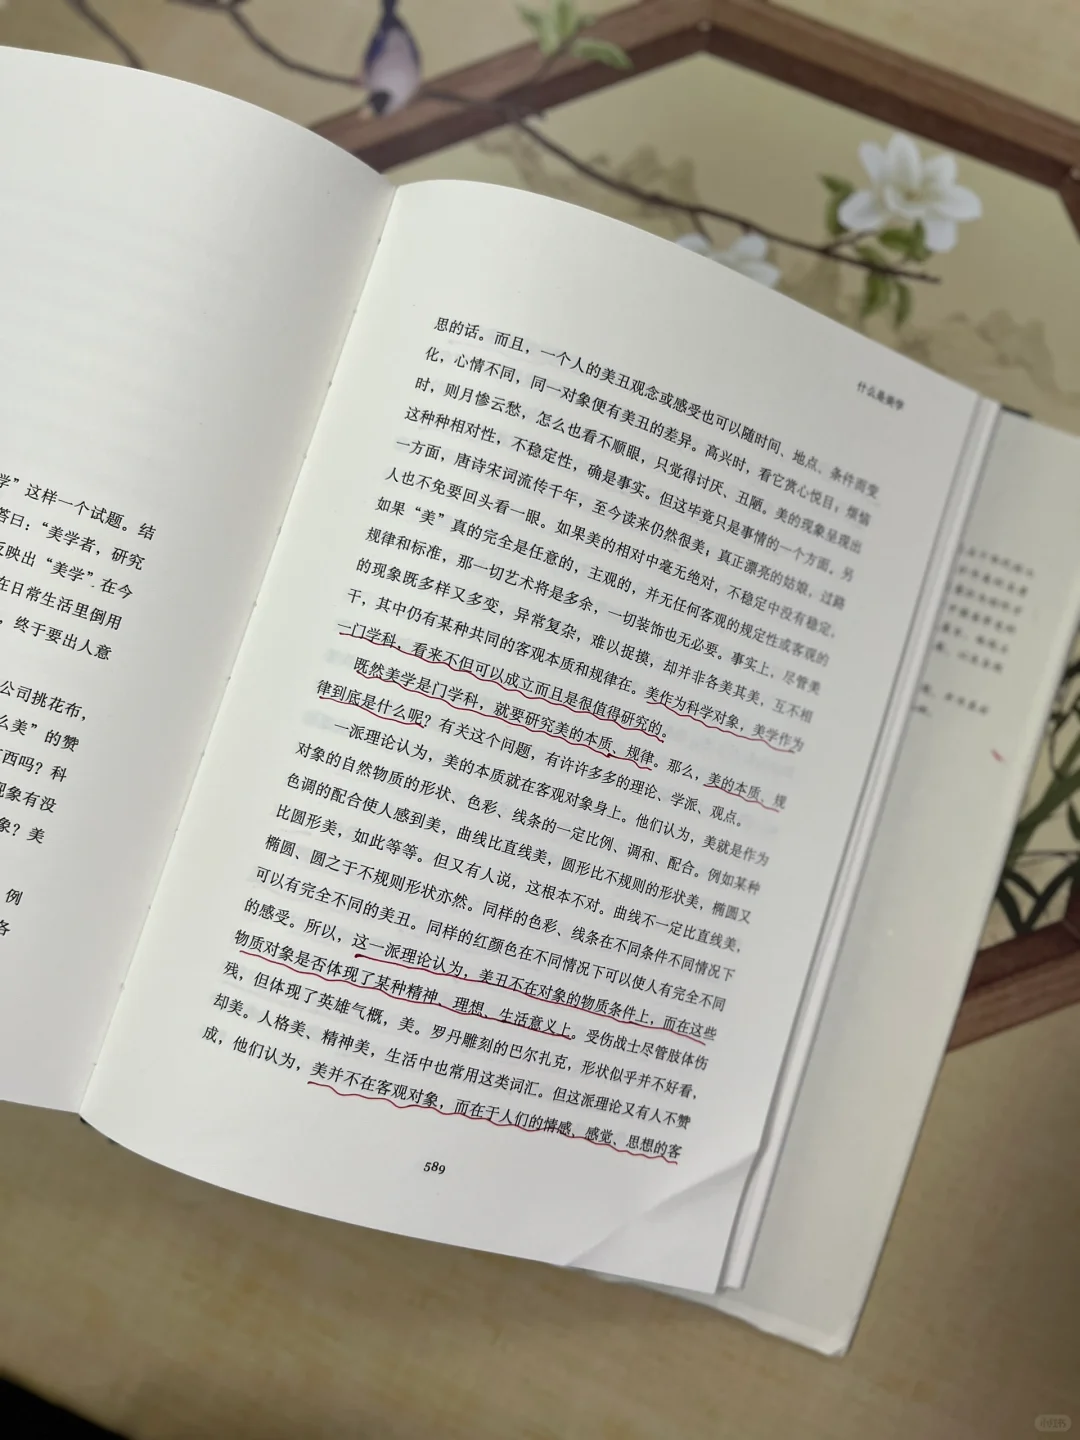 学”这样一个试题。结
答曰：“美学者，研究
反映出“美学”在今
在日常生活里倒用
，终于要出人意
公司挑花布，
么美”的赞
西吗？科
现象有没
象？美
例
各
什么是美学
思的话。而且，一个人的美丑观念或感受也可以随时间、地点、条件而变
化，心情不同，同一对象便有美丑的差异。高兴时，看它赏心悦目；烦恼
时，则月惨云愁，怎么也看不顺眼，只觉得讨厌、丑陋。美的现象呈现出
这种种相对性，不稳定性，确是事实。但这毕竟只是事情的一个方面，另
一方面，唐诗宋词流传千年，至今读来仍然很美；真正漂亮的姑娘，过路
人也不免要回头看一眼。如果美的相对中毫无绝对，不稳定中没有稳定，
如果“美”真的完全是任意的，主观的，并无任何客观的规定性或客观的
规律和标准，那一切艺术将是多余，一切装饰也无必要。事实上，尽管美
的现象既多样又多变，异常复杂，难以捉摸，却并非各美其美，互不相
干，其中仍有某种共同的客观本质和规律在。美作为科学对象，美学作为
一门学科，看来不但可以成立而且是很值得研究的。
既然美学是门学科，就要研究美的本质、规律。那么，美的本质、规
律到底是什么呢？有关这个问题，有许许多多的理论、学派、观点。
一派理论认为，美的本质就在客观对象身上。他们认为，美就是作为
对象的自然物质的形状、色彩、线条的一定比例、调和、配合。例如某种
色调的配合使人感到美，曲线比直线美，圆形比不规则的形状美，椭圆又
比圆形美，如此等等。但又有人说，这根本不对。曲线不一定比直线美，
椭圆、圆之于不规则形状亦然。同样的色彩、线条在不同条件不同情况下
可以有完全不同的美丑。同样的红颜色在不同情况下可以使人有完全不同
的感受。所以，这一派理论认为，美丑不在对象的物质条件上，而在这些
物质对象是否体现了某种精神、理想、生活意义上。受伤战士尽管肢体伤
残，但体现了英雄气概，美。罗丹雕刻的巴尔扎克，形状似乎并不好看，
却美。人格美、精神美，生活中也常用这类词汇。但这派理论又有人不赞
成，他们认为，美并不在客观对象，而在于人们的情感、感觉、思想的客
589
小红书